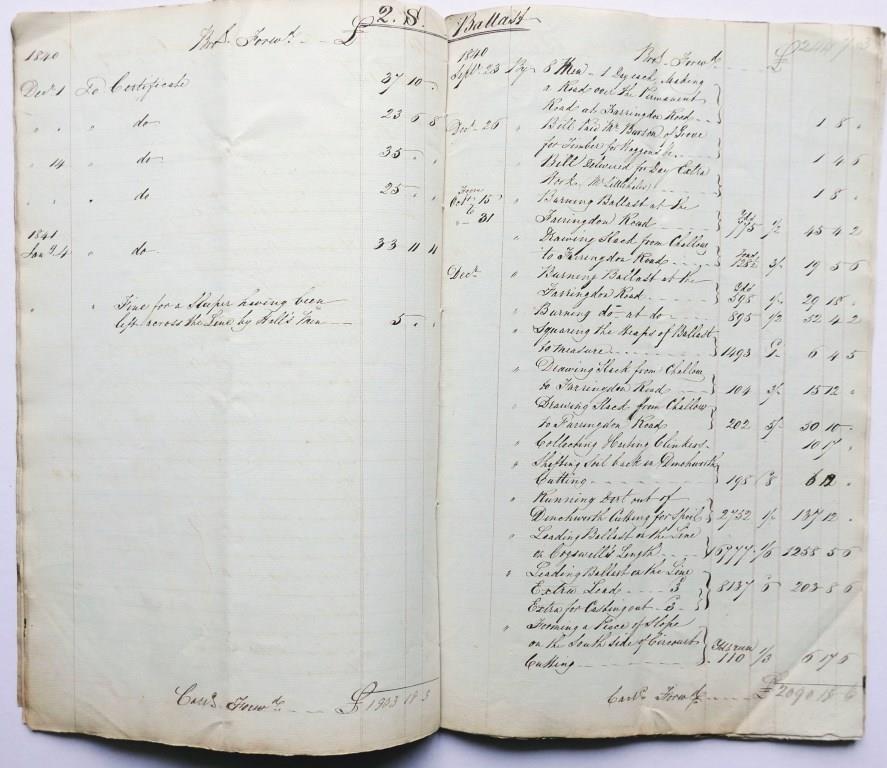 2. S. Ballast
Bro.t Forw.d £
1840
Dec.r 1 To Certificate 37 10 "
" " " do 23 6 8
" 14 " do 35 " "
" " " do 25 " "
1841
Jan.y 4 " do 33 11 11
" " Fine for a Sleeper having been
left across the Line by Hall's Men 5 " "
Car.d Forw.d £ 1903 19 3
1840 Bro.t Forw.d £
Sept.r 23 By 8 Men 1 Day each, Making
a Road over the Permanent
Road at Farringdon Road 1 8 "
Dec.r 26 " Bill Paid Mr of Grove
for Timber for Waggons &c 1 4 6
" Bill Delivered for Day Extra
Work, Mr 1 8 "
From Oct.r 15 " Burning Ballast at the
to " 31 Farringdon Road Yds 775 1/2 45 4 2
" Drawing Slack from Challow
to Farringdon Road 3/- 19 5 6
Dec.r " Burning Ballast at the
Farringdon Road Yds 598 1/- 29 18 "
" Burning do at do 895 1/2 52 4 2
" Squaring the Heaps of Ballast
to measure 1493 6 4 5
" Drawing Slack from Challow
to Farringdon Road 104 3/- 15 12 "
" Drawing Slack from Challow
to Farringdon Road 202 3/- 30 10 "
" Collecting Clinkers 10 17 "
" Shifting Soil back in Denchworth
Cutting 198 /8 6 12 "
" Running Dirt out of
Denchworth Cutting for Spoil 2752 1/- 137 12 "
" Leading Ballast on the Line
on Cogswell's Length 16777 1/6 1258 5 6
" Leading Ballast on the Line
Extra Lead 3 8137 6 203 8 6
Extra for Casting out 3
" Forming a Piece of Slope
on the South side of Circourt
Cutting 110 1/3 6 17 6
Car.d Forw.d £ 2090 18 6